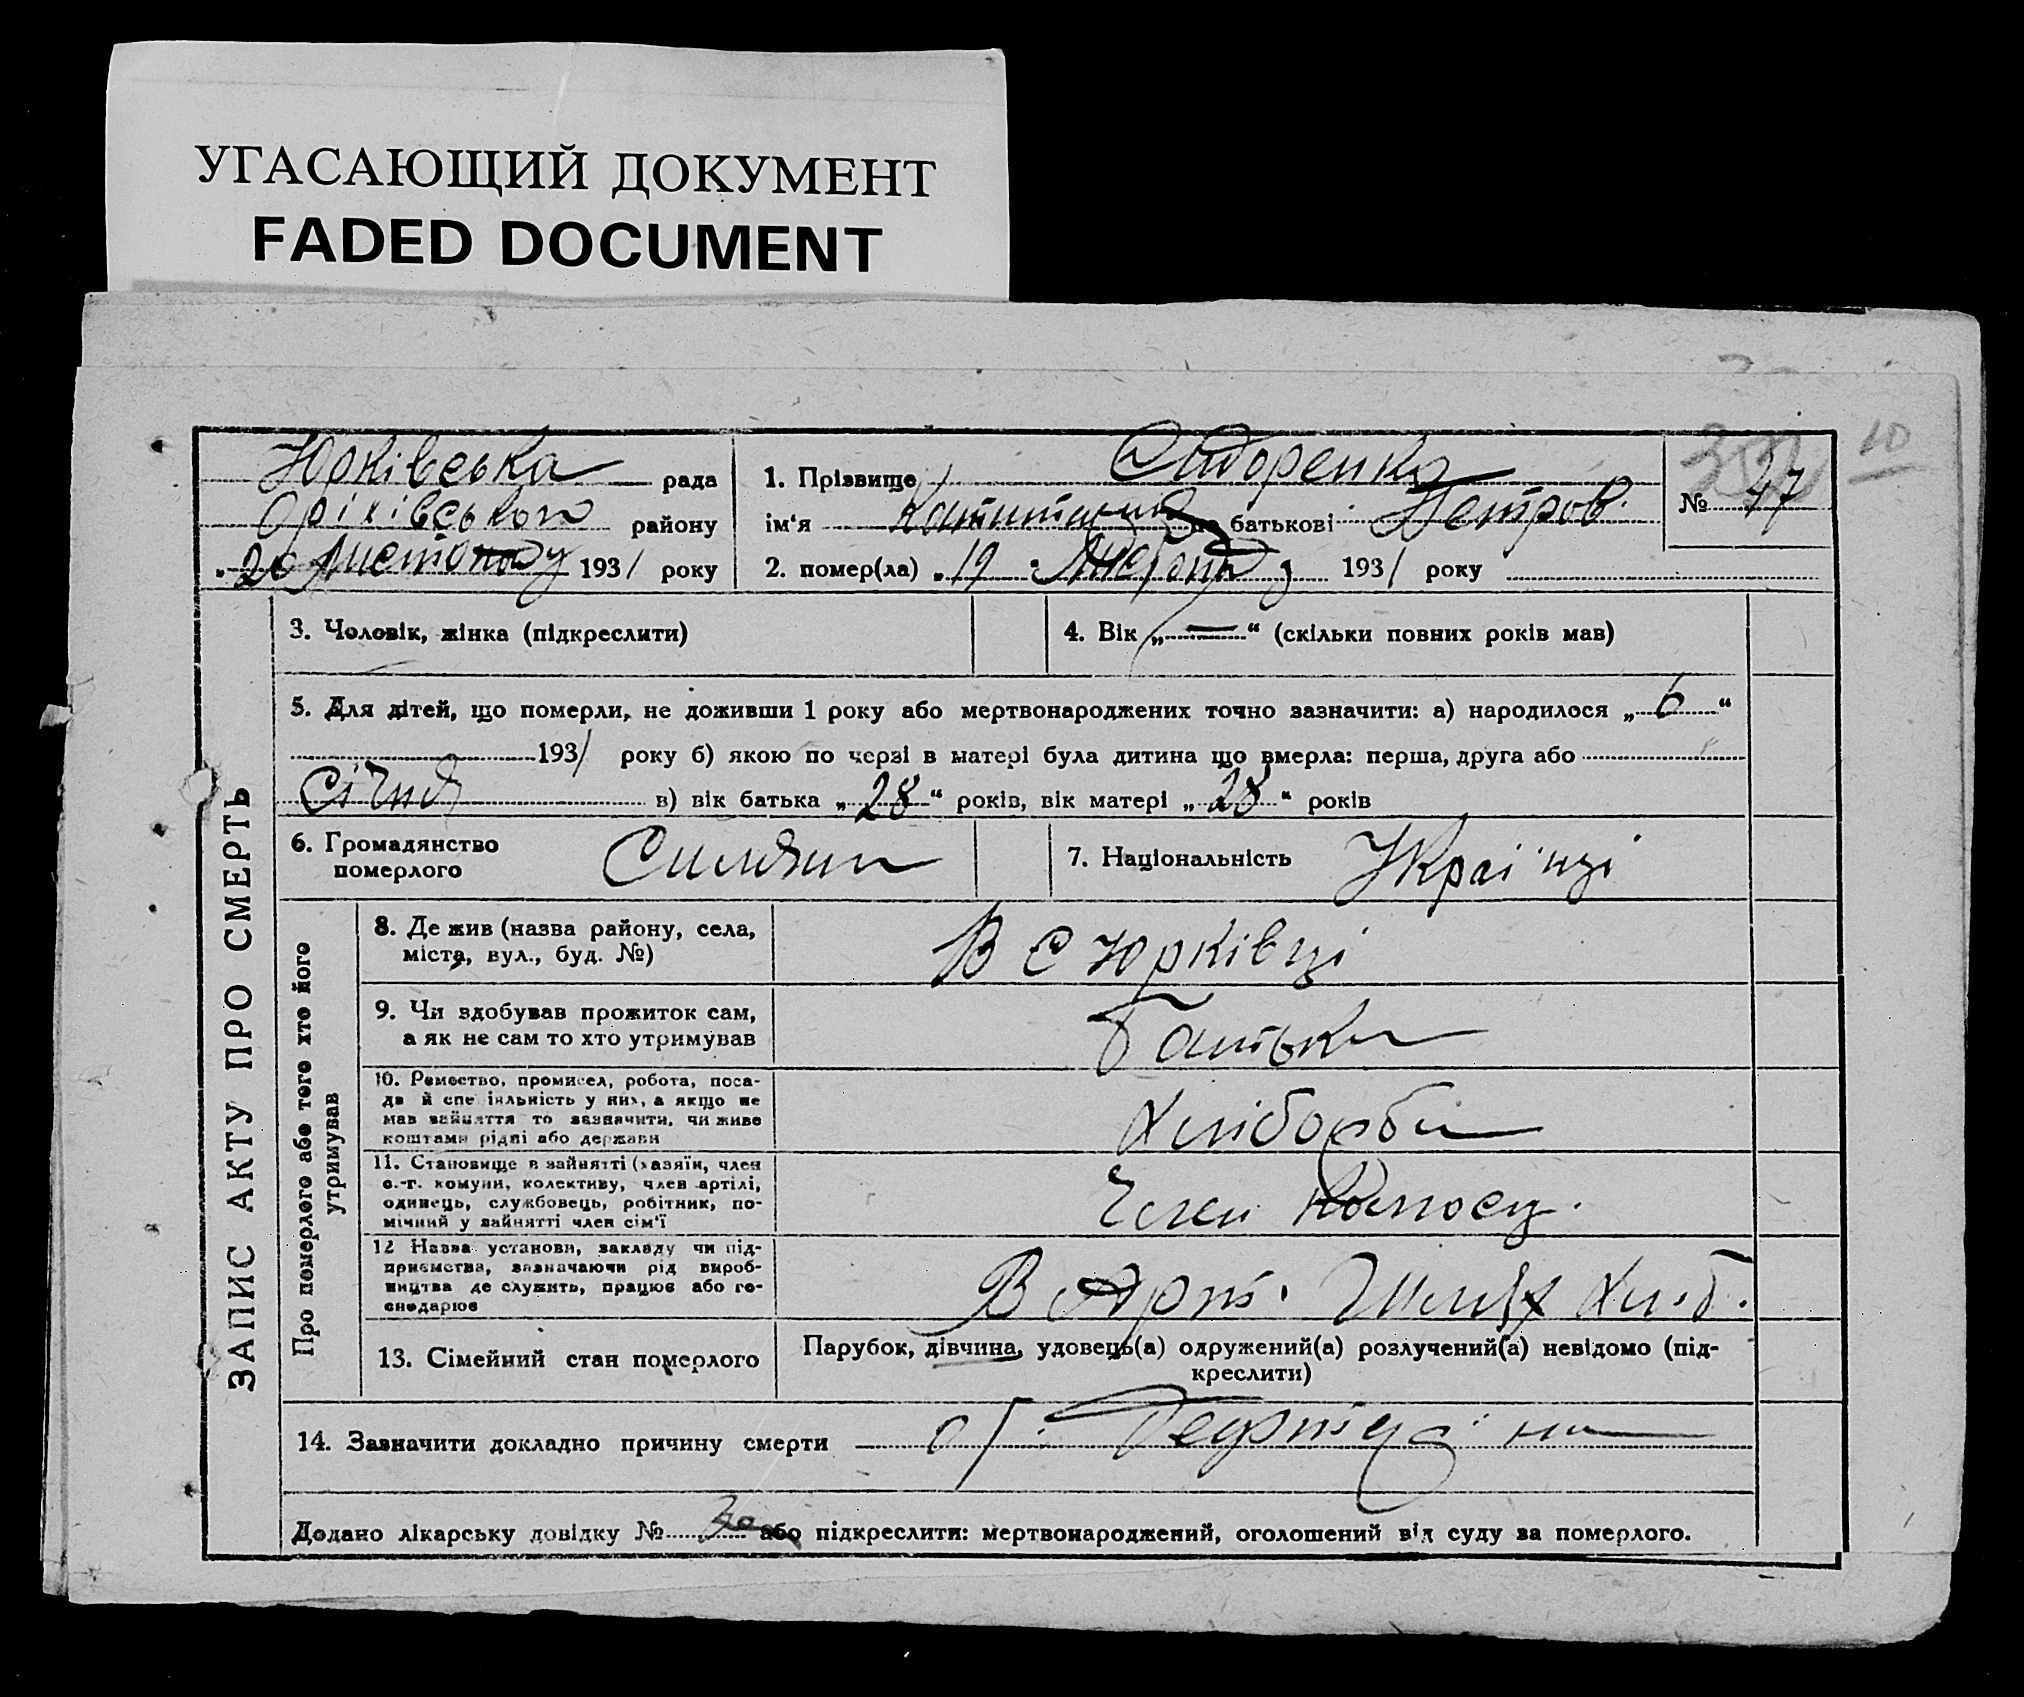 УГАСАЮЩИЙ ДОКУМЕНТ
FADED DOCUMENT
10
Юрківська рада
Оріхівського району
„20 Листопаду 1931 року
1. Прізвище Сидоренко
ім'я по батькові Петров.
№ 47
2. помер(ла) „19 Листопаду 1931 року
ЗАПИС АКТУ ПРО СМЕРТЬ
3. Чоловік, жінка (підкреслити)
4. Вік „—“ (скільки повних років мав)
5. Для дітей, що померли, не доживши 1 року або мертвонароджених точно зазначити: а) народилося „6“
1931 року б) якою по черзі в матері була дитина що вмерла: перша, друга або
Січня в) вік батька „28“ років, вік матері „28“ років
6. Громадянство
померлого
7. Національність Україїнці
Про померлого або того хто його
утримував
8. Де жив (назва району, села,
міста, вул., буд. №)
В с Юрківці
9. Чи здобував прожиток сам,
а як не сам то хто утримував
Батьки
10. Ремество, промисел, робота, поса-
да й спеціяльність у них, а якщо не
мав зайняття то зазначити, чи живе
коштами рідні або держави
Хлібороби
11. Становище в зайнятті (хазяїн, член
с.-г. комуни, колективу, член артілі,
одинець, службовець, робітник, по-
мічний у зайнятті член сім'ї
Член
12 Назва установи, закладу чи під-
приємства, зазначаючи рід вироб-
ництва де служить, працює або го-
сподарює
В Арт. Шлях Хліб.
13. Сімейний стан померлого
Парубок, дівчина, удовець(а) одружений(а) розлучений(а) невідомо (під-
креслити)
14. Зазначити докладно причину смерти от
Додано лікарську довідку № або підкреслити: мертвонароджений, оголошений від суду за померлого.